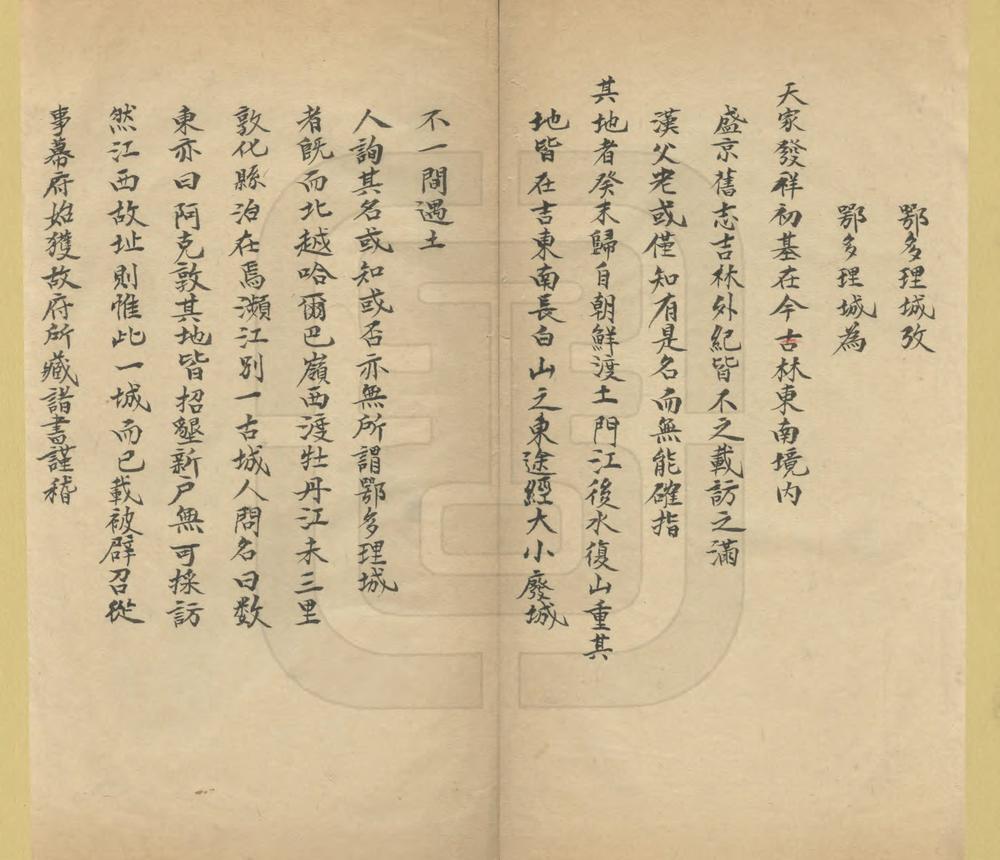 鄂多理城攷
鄂多理城為
天家發祥初基在今吉林東南境內
盛京舊志吉林外紀皆不之載訪之滿
漢父老或僅知有是名而無能確指
其地者癸未歸自朝鮮渡土門江後水復山重其
地皆在吉東南長白山之東途經大小廢城
不一間遇土
人詢其名或知或否亦無所謂鄂多理城
者旣而北越哈爾巴嶺西渡牡丹江未三里
敦化縣治在焉瀕江別一古城人問名曰敖
東亦曰阿克敦其地皆招墾新戶無可採訪
然江西故址則惟此一城而已載被辟召從
事幕府始獲故府所藏諸書謹稽